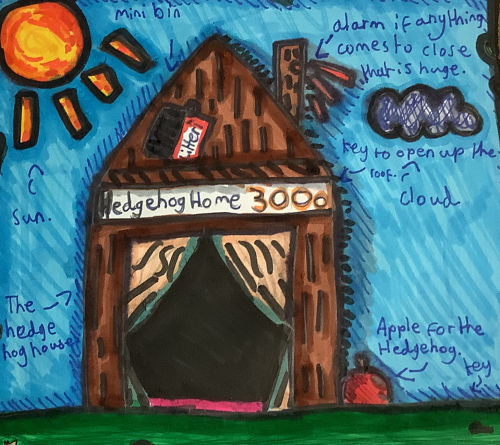 mini bin
alarm if anything
comes to close
that is huge.
litter
key to open up the
roof.
cloud
Sun.
Hedgehog Home 3000
The
hedge
hog house
Apple For the
Hedgehog.
key